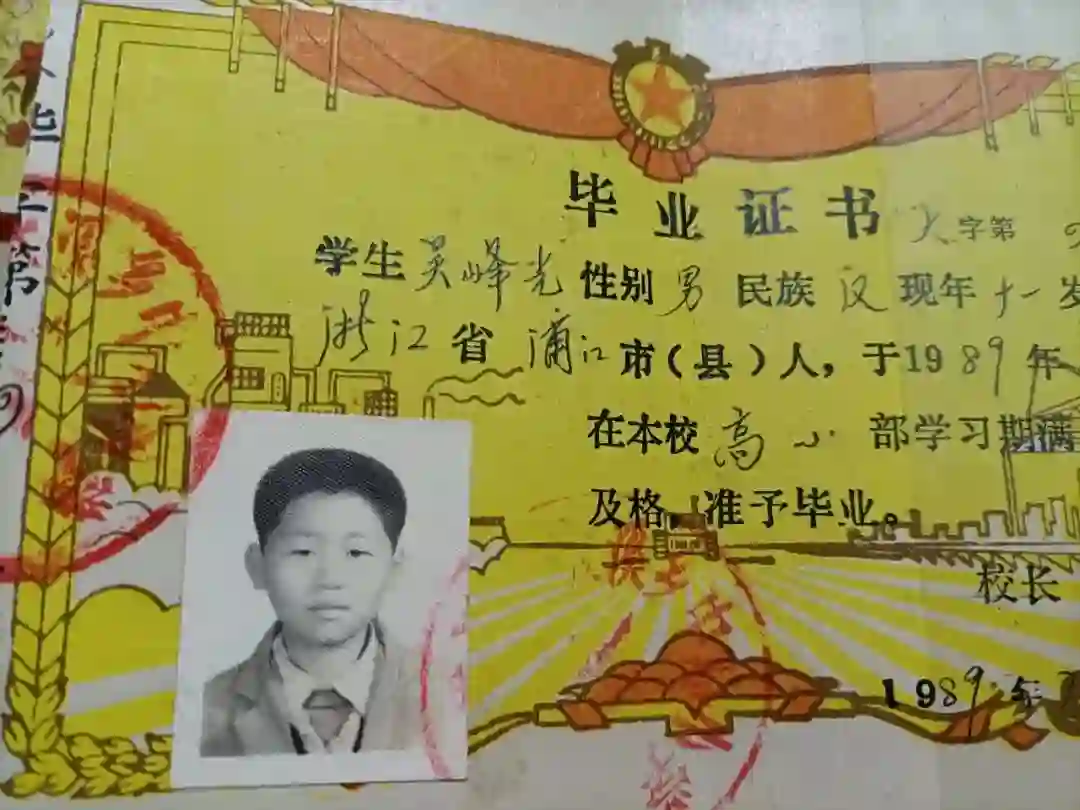 毕业证书 大字第
学生吴峰光性别男民族汉现年十一岁
浙江省浦江市(县)人,于1989年
在本校高小部学习期满
及格,准予毕业。
校长
1989年
第